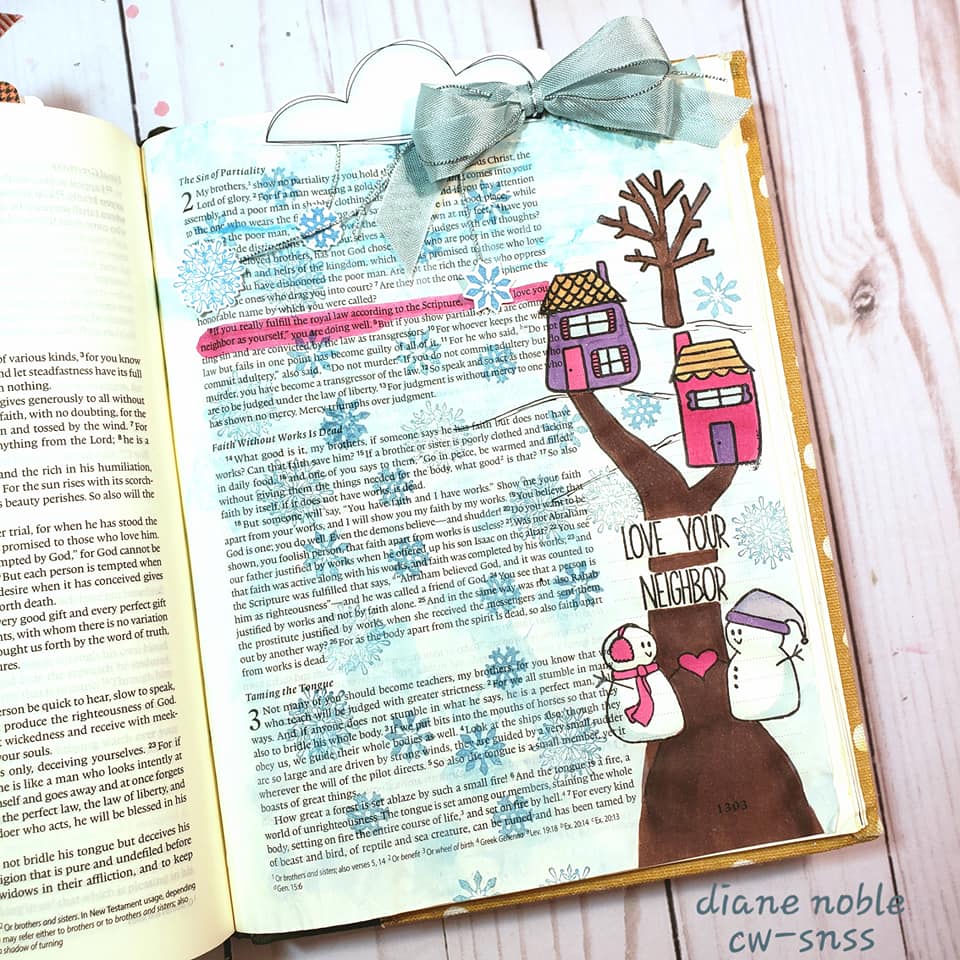 of various kinds, ³ for you know
and let steadfastness have its full
n nothing.
gives generously to all without
faith, with no doubting, for the
n and tossed by the wind. ⁷ For
nything from the Lord; ⁸ he is a
nd the rich in his humiliation,
For the sun rises with its scorch-
s beauty perishes. So also will the
er trial, for when he has stood the
promised to those who love him.
mpted by God," for God cannot be
But each person is tempted when
desire when it has conceived gives
orth death.
ery good gift and every perfect gift
nts, with whom there is no variation
ought us forth by the word of truth,
ures.
erson be quick to hear, slow to speak,
produce the righteousness of God.
wickedness and receive with meek-
your souls.
s only, deceiving yourselves. ²³ For if
he is like a man who looks intently at
mself and goes away and at once forgets
the perfect law, the law of liberty, and
doer who acts, he will be blessed in his
not bridle his tongue but deceives his
ligion that is pure and undefiled before
widows in their affliction, and to keep
² Or brothers and sisters. In New Testament usage, depending
may refer either to brothers or to brothers and sisters; also
shadow of turning
The Sin of Partiality
2 My brothers, ¹ show no partiality as you hold the
us Christ, the
Lord of glory. ² For if a man wearing a gold
comes into your
assembly, and a poor man in shabby clothing
and if you pay attention
to the one who wears the
e in a good place," while
the poor man,
wn at my feet," ⁴ have you
ade distinctions
judges with evil thoughts?
beloved brothers, has not God chosen
who are poor in the world to
and heirs of the kingdom, which
promised to those who love
have dishonored the poor man. Are not the rich the ones who oppress
he ones who drag you into court? ⁷ Are they not the ones
blaspheme the
honorable name by which you were called?
⁸ If you really fulfill the royal law according to the Scripture,
love you
neighbor as yourself," you are doing well. ⁹ But if you show partiality
ting sin and are convicted by the law as transgressors. ¹⁰ For whoever keeps the wh
law but fails in one point has become guilty of all of it. ¹¹ For he who said, "Do not
commit adultery," also said, "Do not murder." If you do not commit adultery but do
murder, you have become a transgressor of the law. ¹² So speak and so act as those who
are to be judged under the law of liberty. ¹³ For judgment is without mercy to one who
has shown no mercy. Mercy triumphs over judgment.
Faith Without Works Is Dead
¹⁴ What good is it, my brothers, if someone says he has faith but does not have
works? Can that faith save him? ¹⁵ If a brother or sister is poorly clothed and lacking
in daily food, ¹⁶ and one of you says to them, "Go in peace, be warmed and filled,"
without giving them the things needed for the body, what good² is that? ¹⁷ So also
faith by itself, if it does not have works, is dead.
¹⁸ But someone will say, "You have faith and I have works." Show me your faith
apart from your works, and I will show you my faith by my works. ¹⁹ You believe that
God is one; you do well. Even the demons believe—and shudder! ²⁰ Do you want to be
shown, you foolish person, that faith apart from works is useless? ²¹ Was not Abraham
our father justified by works when he offered up his son Isaac on the altar? ²² You see
that faith was active along with his works, and faith was completed by his works; ²³ and
the Scripture was fulfilled that says, "Abraham believed God, and it was counted to
him as righteousness"—and he was called a friend of God. ²⁴ You see that a person is
justified by works and not by faith alone. ²⁵ And in the same way was not also Rahab
the prostitute justified by works when she received the messengers and sent them
out by another way? ²⁶ For as the body apart from the spirit is dead, so also faith apart
from works is dead.
Taming the Tongue
3 Not many of you should become teachers, my brothers, for you know that w
who teach will be judged with greater strictness. ² For we all stumble in many
ways. And if anyone does not stumble in what he says, he is a perfect man,
also to bridle his whole body. ³ If we put bits into the mouths of horses so that they
obey us, we guide their whole bodies as well. ⁴ Look at the ships also: though they
are so large and are driven by strong winds, they are guided by a very small rudder
wherever the will of the pilot directs. ⁵ So also the tongue is a small member, yet it
boasts of great things.
How great a forest is set ablaze by such a small fire! ⁶ And the tongue is a fire, a
world of unrighteousness. The tongue is set among our members, staining the whole
body, setting on fire the entire course of life,³ and set on fire by hell.⁴ ⁷ For every kind
of beast and bird, of reptile and sea creature, can be tamed and has been tamed by
¹ Or brothers and sisters; also verses 5, 14 ² Or benefit ³ Or wheel of birth ⁴ Greek Gehenna
Lev. 19:18
Ex. 20:14
Ex. 20:13
Gen. 15:6
LOVE YOUR
NEIGHBOR
1303
diane noble
cw-snss